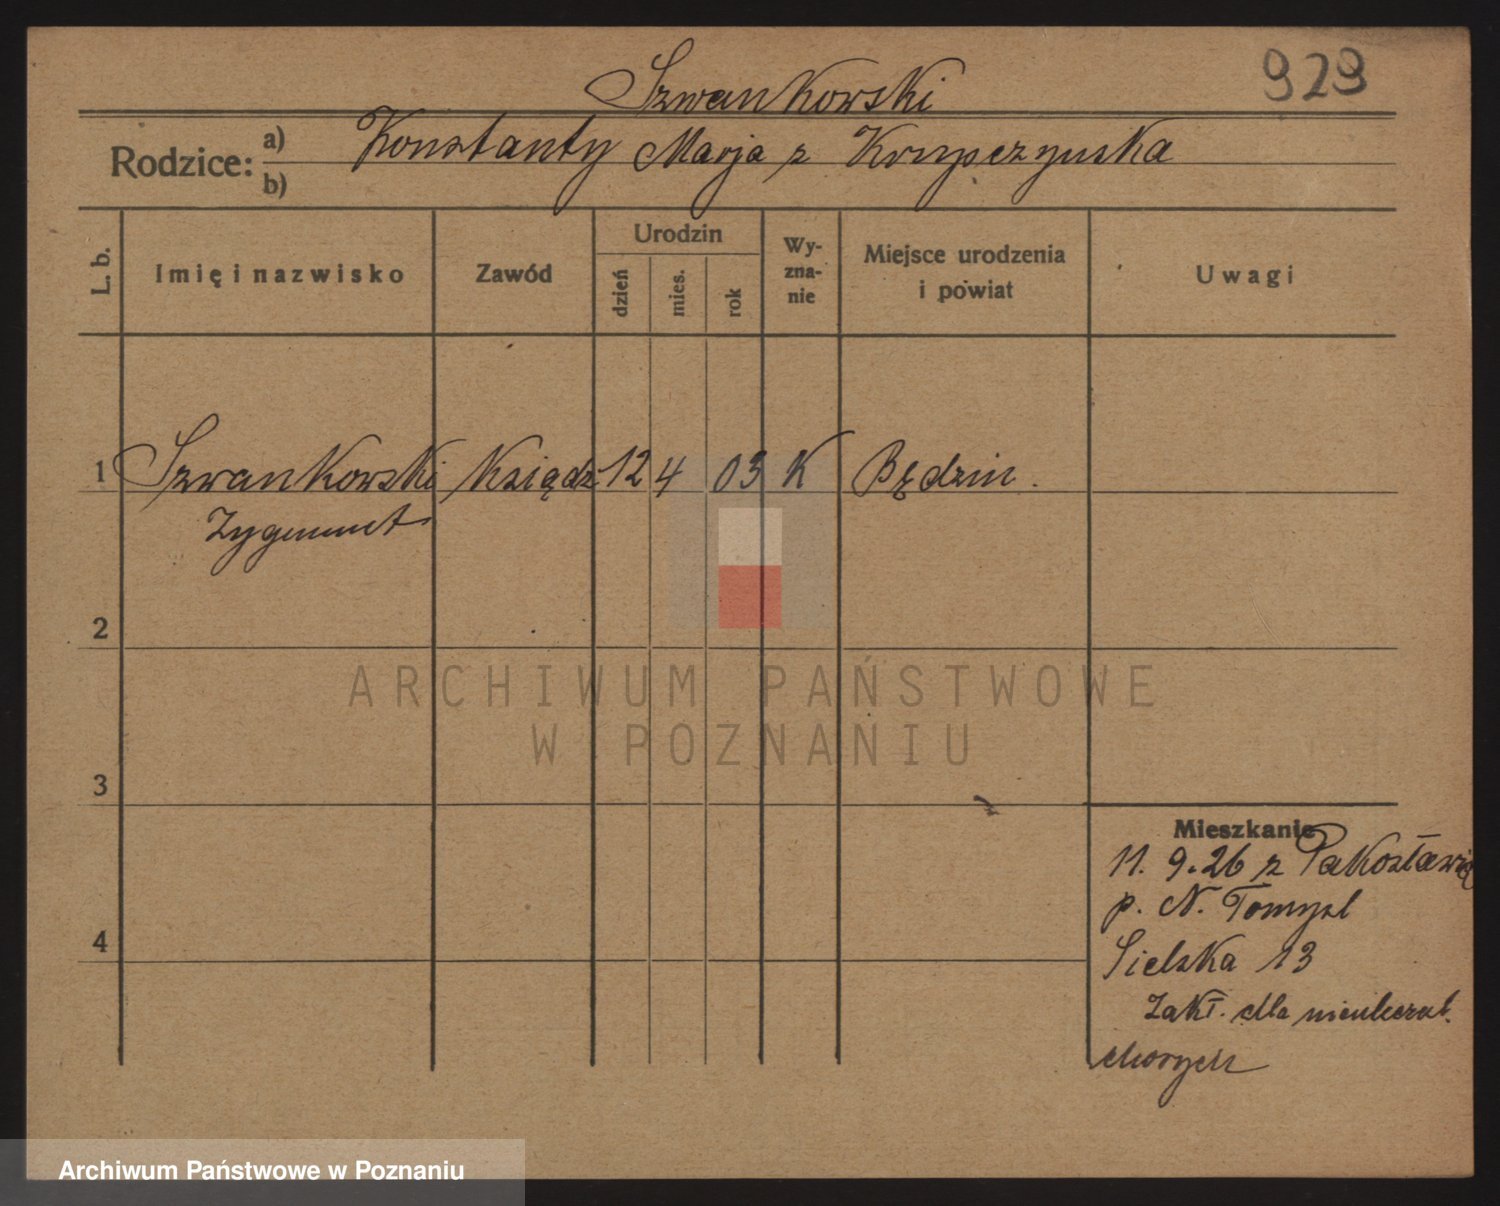 929
Szwankowski
Rodzice: a) Konstanty Marja z Krupczyńska
b)
L. b. Imię i nazwisko Zawód Urodzin dzień mies. rok Wy-zna-nie Miejsce urodzenia i powiat Uwagi
1 Szwankowski Ksiądz 12 4 03 K Będzin.
Zygmunt
2
ARCHIWUM PAŃSTWOWE
W POZNANIU
3
Mieszkanie
11. 9. 26 z Pakosławia
p. N. Tomysl
Sielska 13
4
Zakł. dla nieuleczal.
chorych
Archiwum Państwowe w Poznaniu